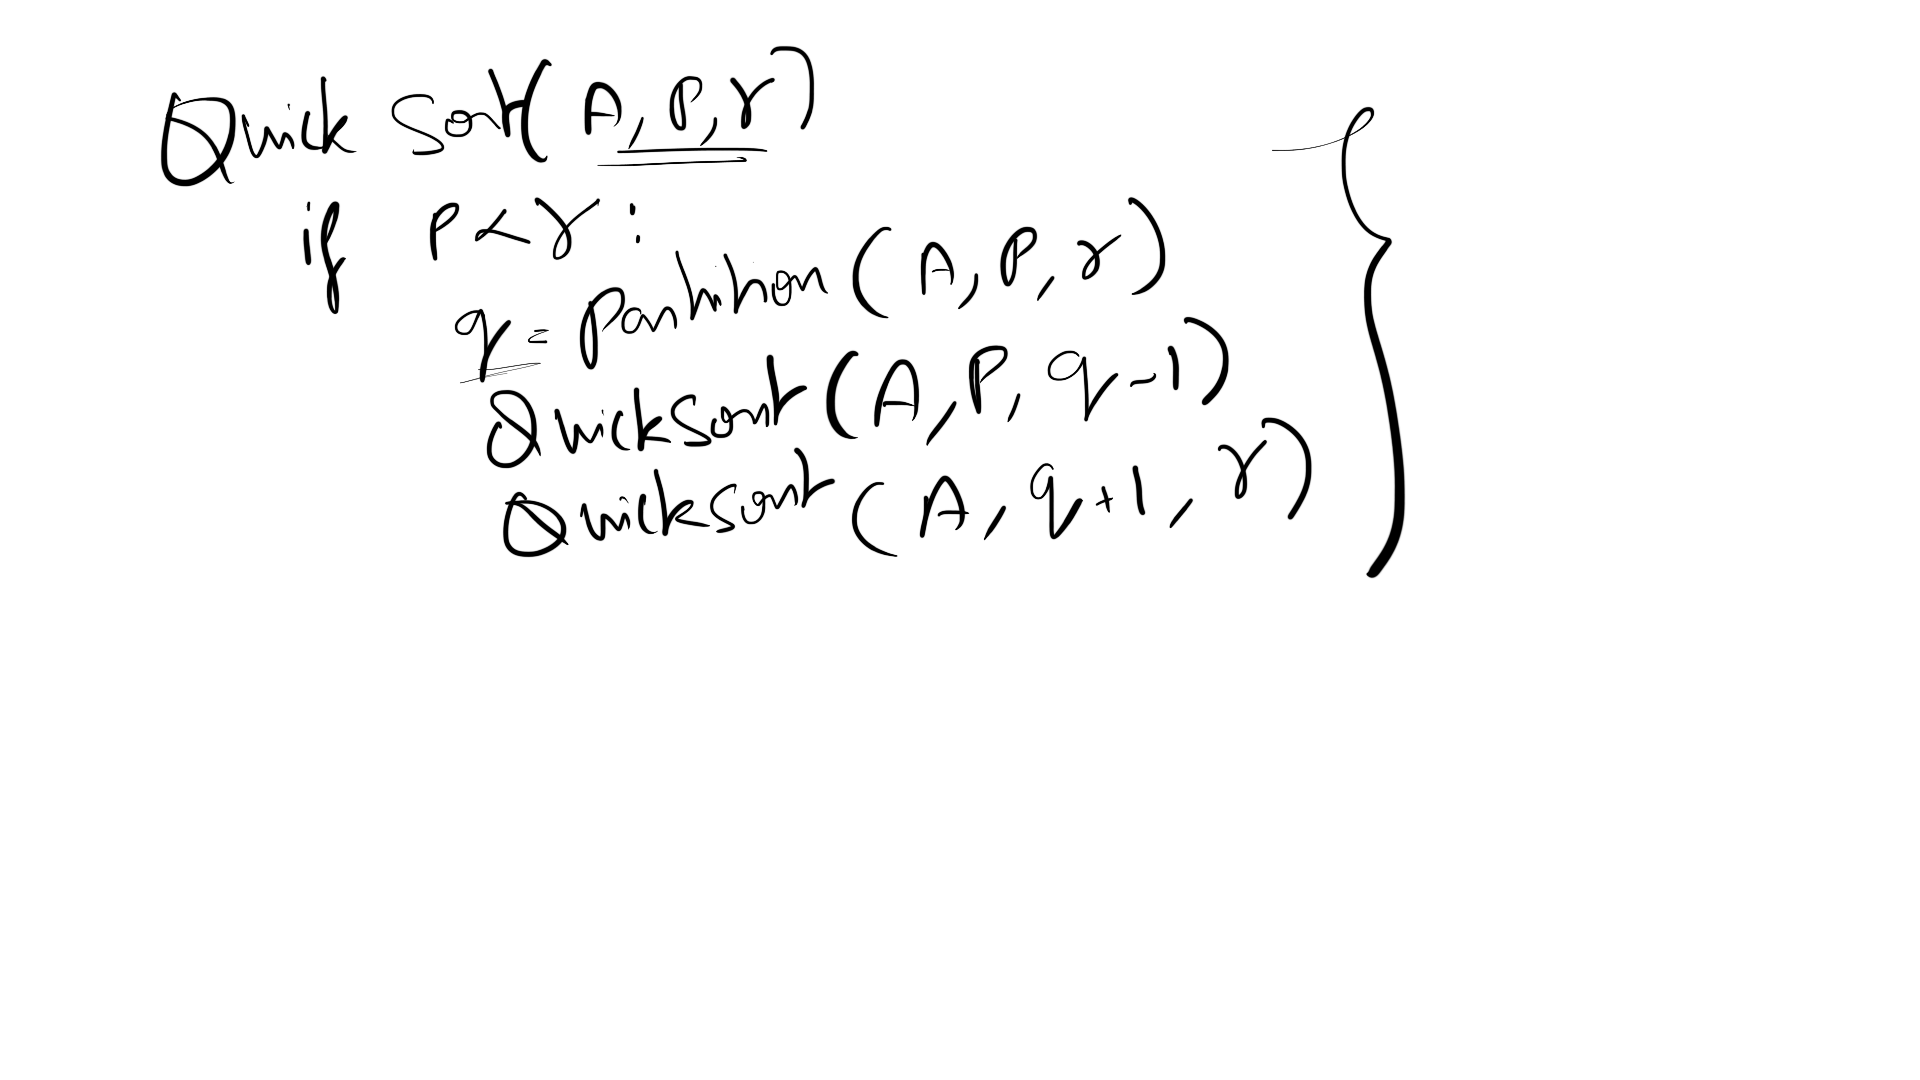 Quick Sort(A, P, r)
if P < r :
q = Partition(A, P, r)
Quicksort(A, P, q-1)
Quicksort(A, q+1, r)